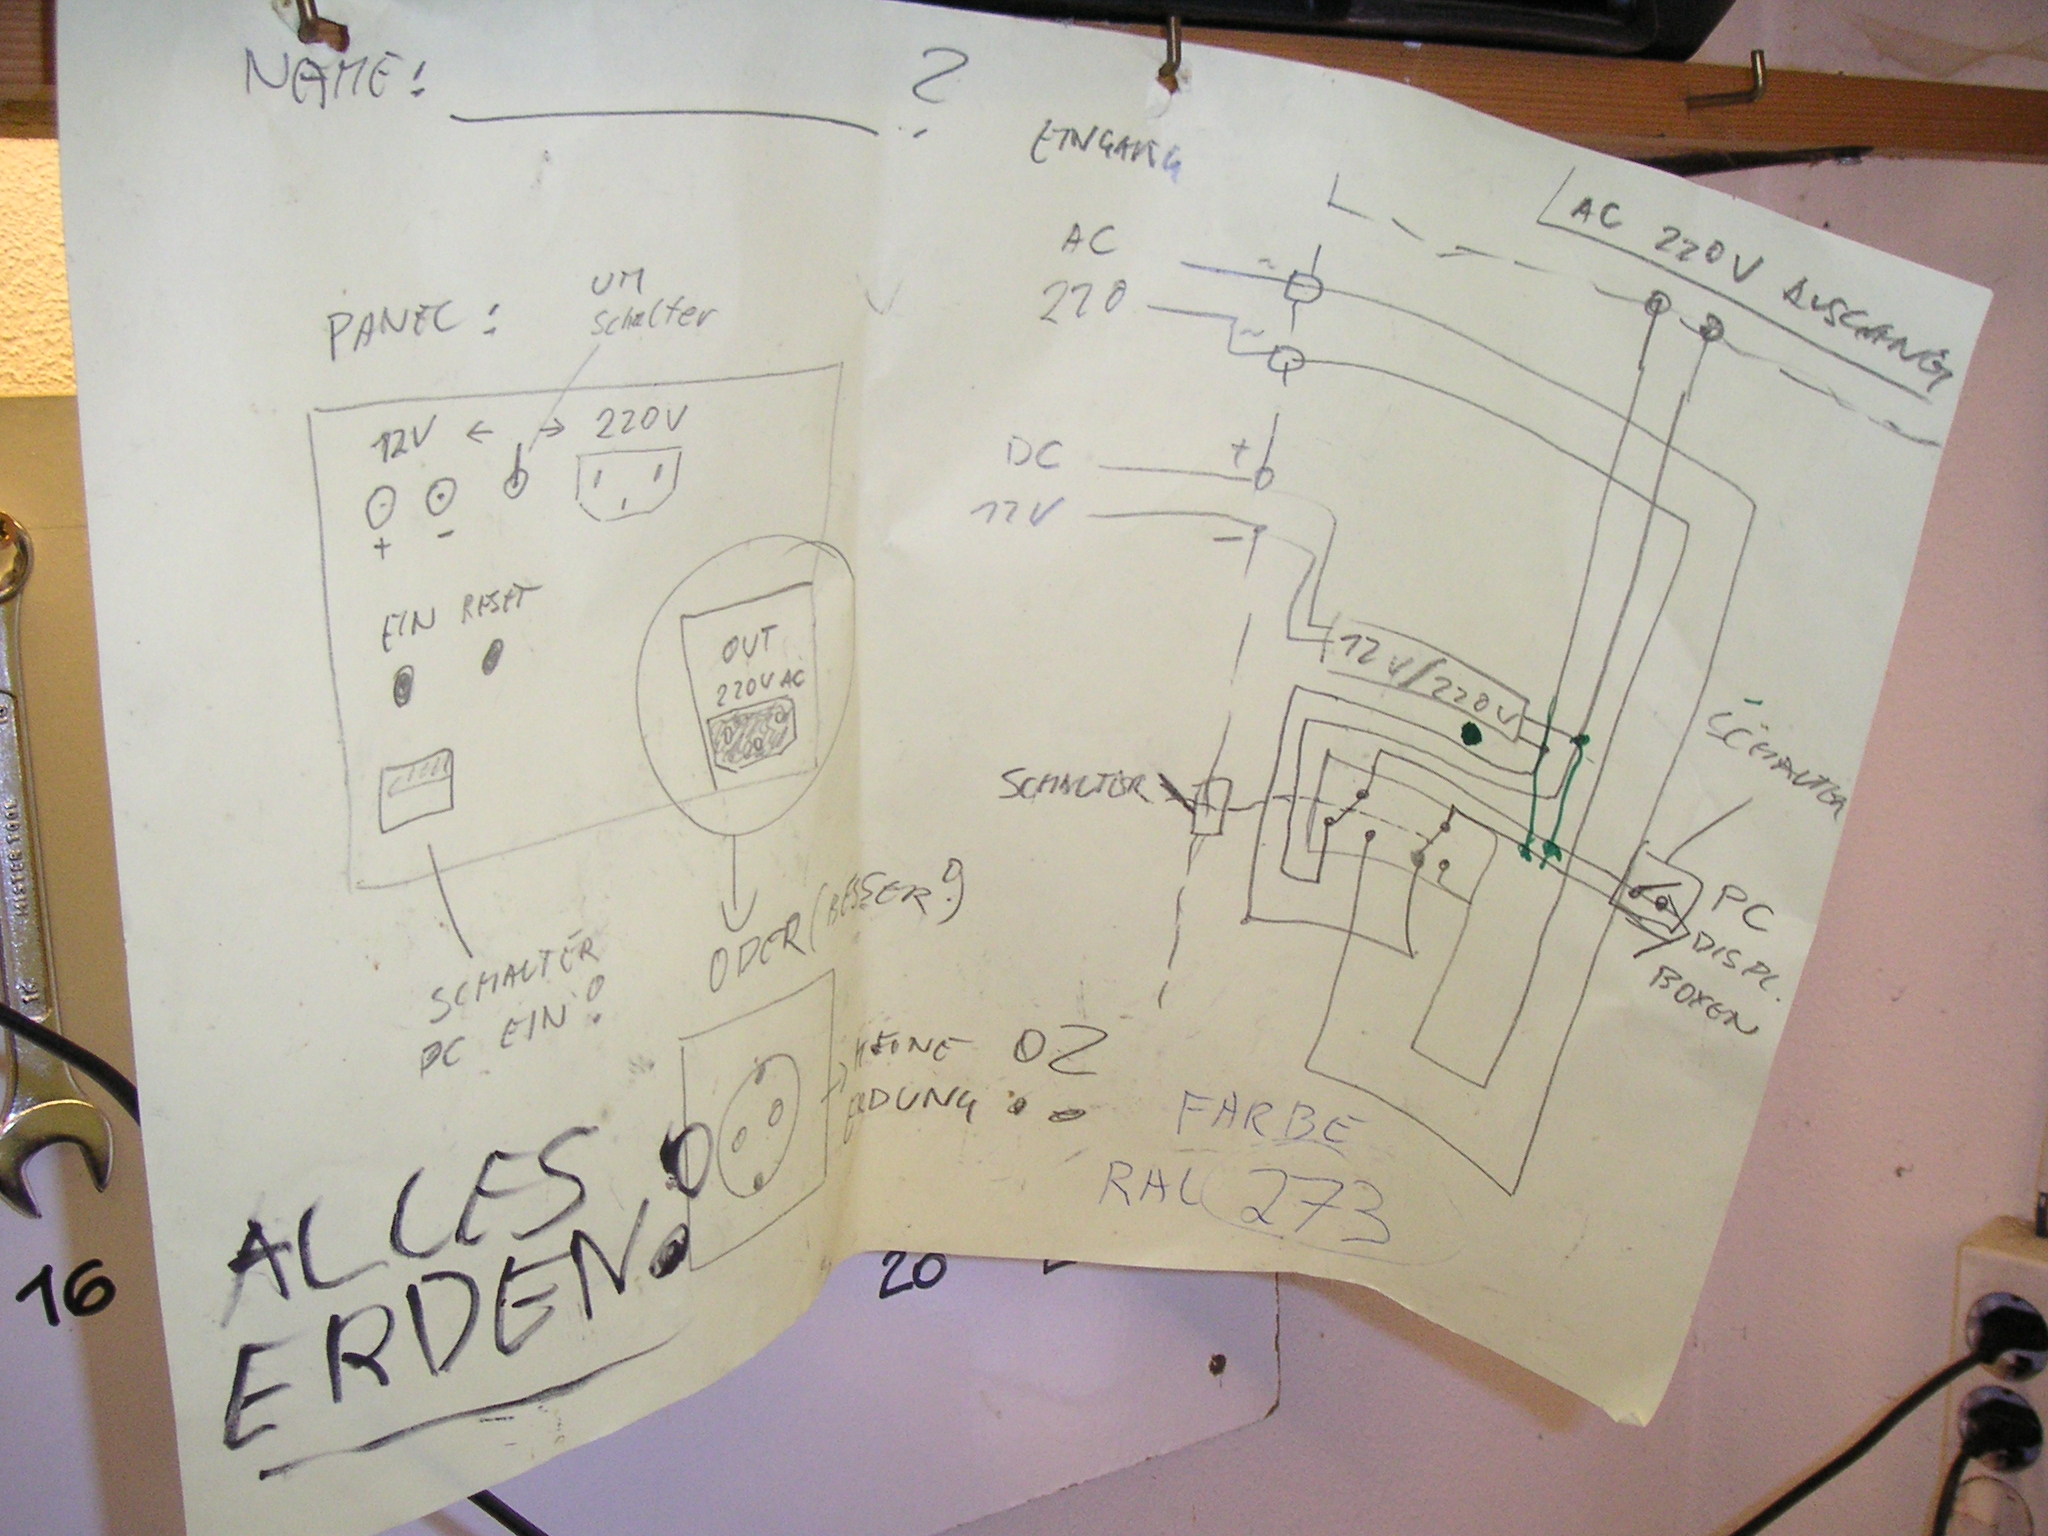 NAME: ?
PANEL:
UM
schalter
12V ← → 220V
+ -
EIN RESET
OUT
220V AC
SCHALTER
DC EIN!
ODER (BESSER?)
KEINE
ERDUNG
ALLES
ERDEN!
EINGANG
AC
220
~
~
AC 220V AUSGANG
DC
12V
+
-
12V/220V
SCHALTER
SCHALTER
PC
DISPL.
BOXEN
FARBE
RAL 273
16
20
16
MEISTER TOOL